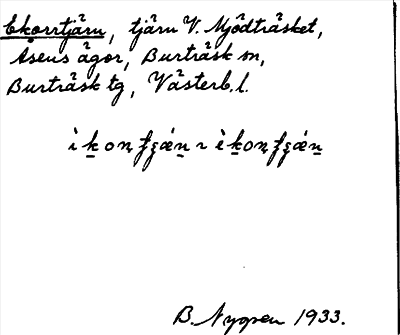 Ekorrtjärn, tjärn V. Mjödträsket,
Åsens ägor, Burträsk sn,
Burträsk tg, Västerb. l.
B. Nygren 1933.